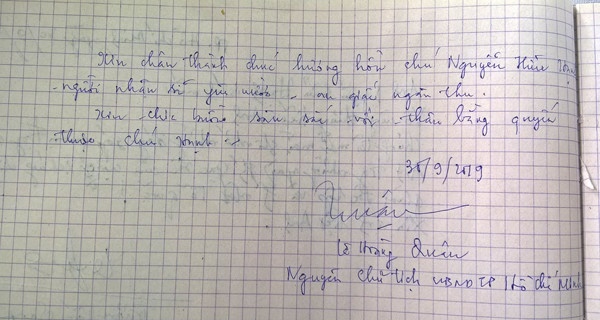 Xin chân thành chúc hương hồn chú Nguyễn Hữu
- người nhân sĩ yêu nước - an giấc ngàn thu.
Xin chia buồn sâu sắc với thân bằng quyến
thuộc chú Hạnh
30/9/2019
Quân
Lê Hoàng Quân
Nguyên Chủ tịch UBND TP Hồ Chí Minh